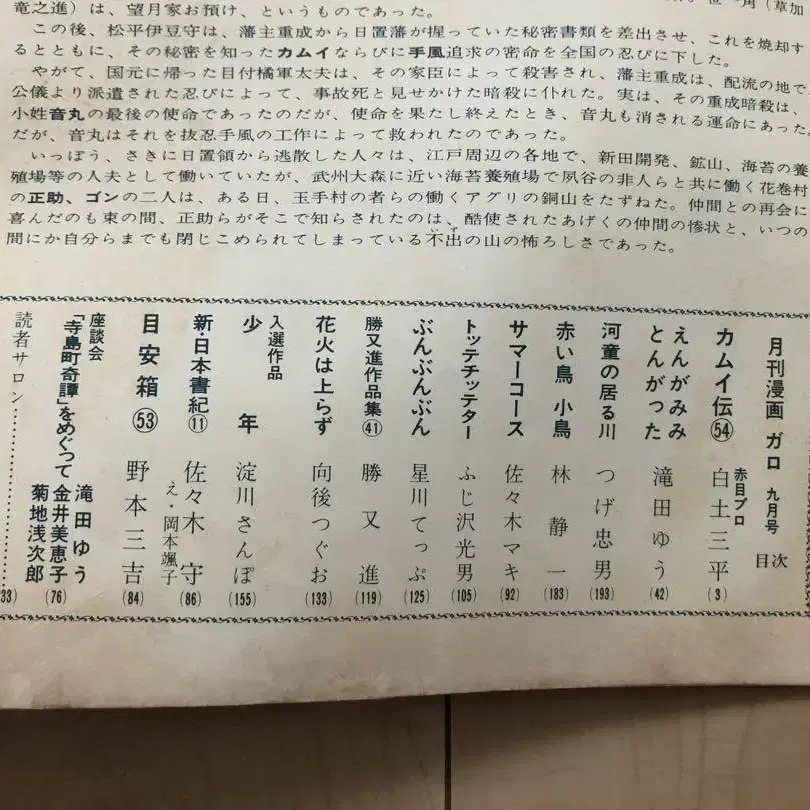 竜之進）は、望月家お預け、というものであった。
この後、松平伊豆守は、藩主重成から日置藩が握っていた秘密書類を差出させ、これを焼却す
るとともに、その秘密を知ったカムイならびに手風追求の密命を全国の忍びに下した。
やがて、国元に帰った目付橘軍太夫は、その家臣によって殺害され、藩主重成は、配流の地で、
公儀より派遣された忍びによって、事故死と見せかけた暗殺に仆れた。実は、その重成暗殺は、
小姓音丸の最後の使命であったのだが、使命を果たし終えたとき、音丸も消される運命にあった。
だが、音丸はそれを抜忍手風の工作によって救われたのであった。
いっぽう、さきに日置領から逃散した人々は、江戸周辺の各地で、新田開発、鉱山、海苔の養
殖場等の人夫として働いていたが、武州大森に近い海苔養殖場で夙谷の非人らと共に働く花巻村
の正助、ゴンの二人は、ある日、玉手村の者らの働くアグリの銅山をたずねた。仲間との再会に
喜んだのも束の間、正助らがそこで知らされたのは、酷使されたあげくの仲間の惨状と、いつの
間にか自分らまでも閉じこめられてしまっている不出の山の怖ろしさであった。
月刊漫画 ガロ 九月号 目次
カムイ伝㊴ 赤目プロ 白土三平 (3)
えんがみみとんがった 滝田ゆう (42)
河童の居る川 つげ忠男 (193)
赤い鳥 小鳥 林静一 (183)
サマーコース 佐々木マキ (92)
トッテチッテター ふじ沢光男 (105)
ぶんぶんぶん 星川てっぷ (125)
勝又進作品集㊶ 勝又進 (119)
花火は上らず 向後つぐお (133)
入選作品 少年 淀川さんぽ (155)
新・日本書紀⑪ 佐々木守 え・岡本颯子 (86)
目安箱(53) 野本三吉 (84)
座談会 「寺島町奇譚」をめぐって 滝田ゆう 金井美恵子 菊地浅次郎 (76)
読者サロン…………… 33)